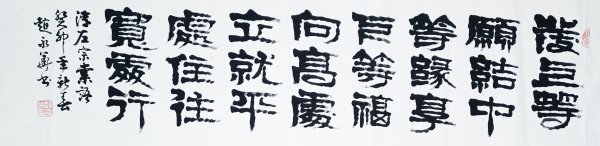 發巨等
願結中
等緣享
巨等福
向高處
立就平
處住往
寬處行
清左宗棠語
癸卯年新春
趙永華書